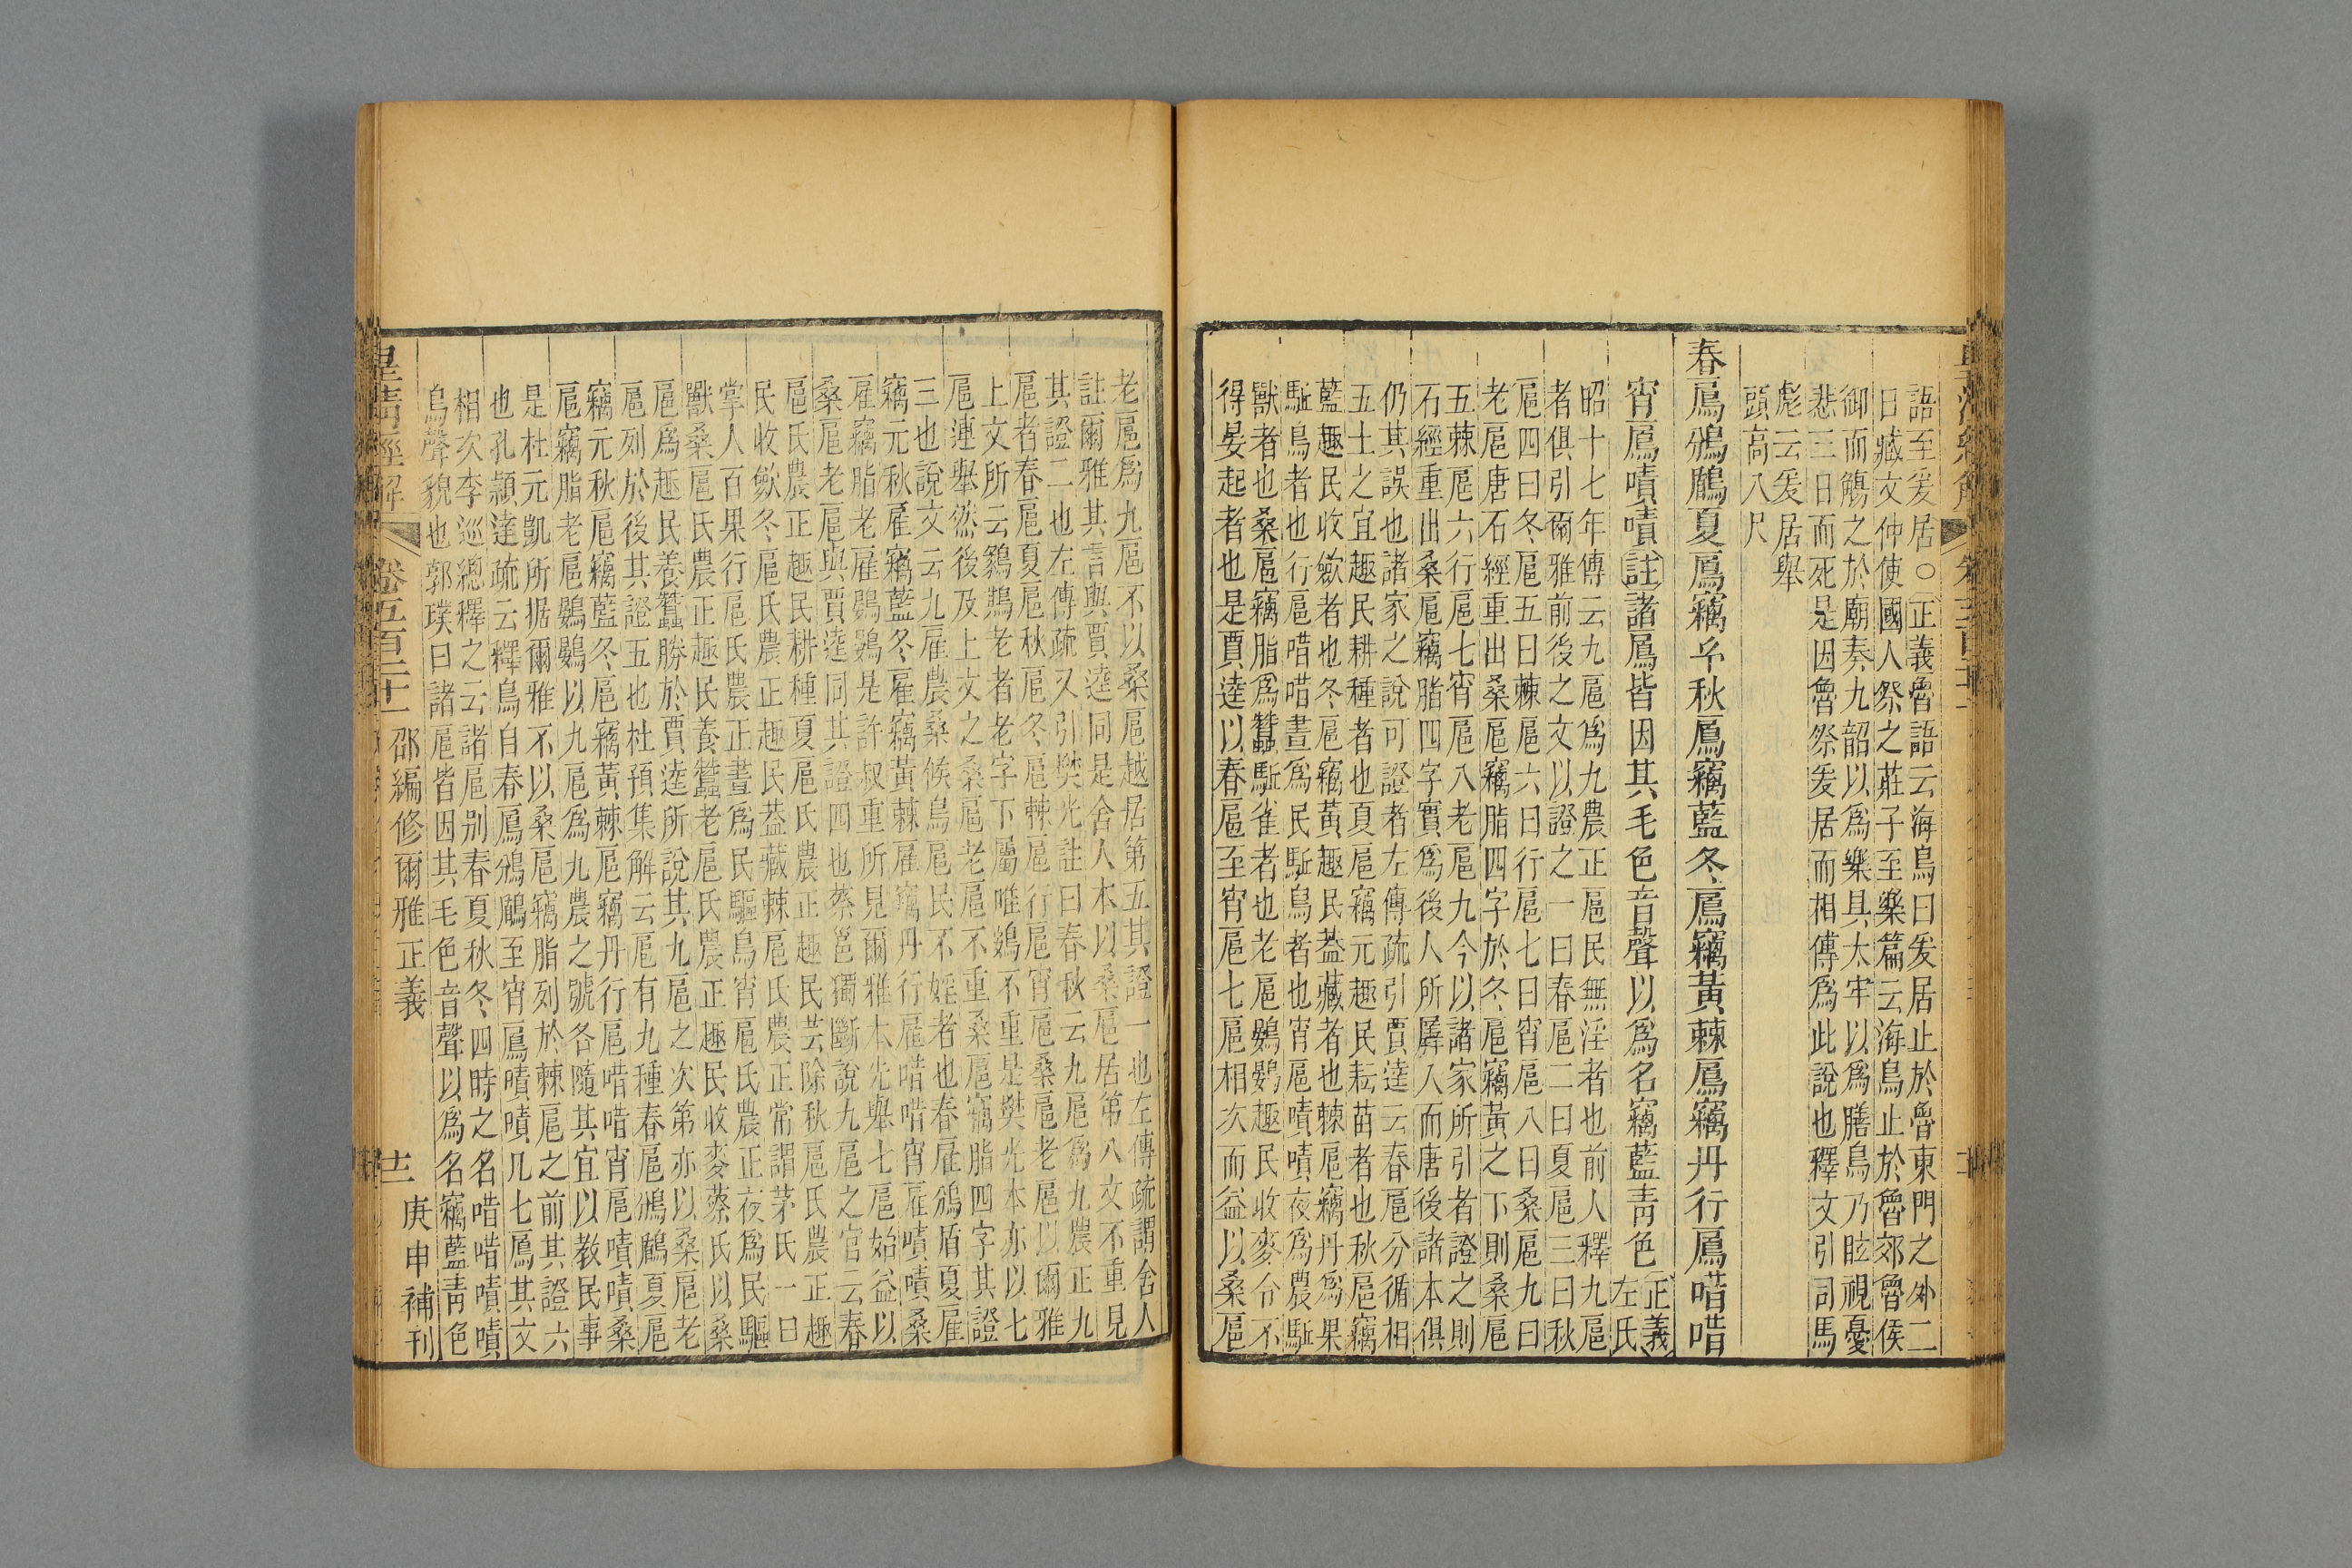 語至爰居○正義魯語云海鳥曰爰居止於魯東門之外二
日臧文仲使國人祭之莊子至樂篇云海鳥止於魯郊魯侯
御而觴之於廟奏九韶以爲樂具太牢以爲膳鳥乃眩視憂
悲三日而死是因魯祭爰居而相傳爲此說也釋文引司馬
彪云爰居舉
頭高八尺
春鳸鳻鶞夏鳸竊𤣥秋鳸竊藍冬鳸竊黃棘鳸竊丹行鳸唶唶
宵鳸嘖嘖註諸鳸皆因其毛色音聲以爲名竊藍靑色正義
左氏
昭十七年傳云九扈爲九農正扈民無淫者也前人釋九扈
者俱引爾雅前後之文以證之一曰春扈二曰夏扈三曰秋
扈四曰冬扈五曰棘扈六曰行扈七曰宵扈八曰桑扈九曰
老扈唐石經重出桑扈竊脂四字於冬扈竊黃之下則桑扈
五棘扈六行扈七宵扈八老扈九今以諸家所引者證之則
石經重出桑扈竊脂四字實爲後人所羼入而唐後諸本俱
仍其誤也諸家之說可證者左傳疏引賈逵云春扈分循相
五土之宜趣民耕種者也夏扈竊元趣民耘苗者也秋扈竊
藍趣民收斂者也冬扈竊黃趣民蓋藏者也棘扈竊丹爲果
駈鳥者也行扈唶唶晝爲民駈鳥者也宵扈嘖嘖夜爲農駈
獸者也桑扈竊脂爲蠶駈雀者也老扈鷃鷃趣民收麥令不
得晏起者也是賈逵以春扈至宵扈七扈相次而益以桑扈
老扈爲九扈不以桑扈越居第五其證一也左傳疏謂舍人
註爾雅其言與賈逵同是舍人本以桑扈居第八文不重見
其證二也左傳疏又引樊光註曰春秋云九扈爲九農正九
扈者春扈夏扈秋扈冬扈棘扈行扈宵扈桑扈老扈以爾雅
上文所云鷄鷃老者老字下屬唯鷄不重是樊光本亦以七
扈連舉然後及上文之桑扈老扈不重桑扈竊脂四字其證
三也說文云九雇農桑候鳥扈民不婬者也春雇鳻盾夏雇
竊元秋雇竊藍冬雇竊黃棘雇竊丹行雇唶唶宵雇嘖嘖桑
雇竊脂老雇鷃鷃是許叔重所見爾雅本先舉七扈始益以
桑扈老扈與賈逵同其證四也蔡邕獨斷說九扈之官云春
扈氏農正趣民耕種夏扈氏農正趣民芸除秋扈氏農正趣
民收斂冬扈氏農正趣民蓋藏棘扈氏農正常謂茅氏一曰
掌人百果行扈氏農正晝爲民驅鳥宵扈氏農正夜爲民驅
獸桑扈氏農正趣民養蠶老扈氏農正趣民收麥蔡氏以桑
扈爲趣民養蠶勝於賈逵所說其九扈之次第亦以桑扈老
扈列於後其證五也杜預集解云扈有九種春扈鳻鶞夏扈
竊元秋扈竊藍冬扈竊黃棘扈竊丹行扈唶唶宵扈嘖嘖桑
扈竊脂老扈鷃鷃以九扈爲九農之號各隨其宜以教民事
是杜元凱所据爾雅不以桑扈竊脂列於棘扈之前其證六
也孔穎達疏云釋鳥自春鳸鳻鶞至宵鳸嘖嘖几七鳸其文
相次李巡總釋之云諸扈别春夏秋冬四時之名唶唶嘖嘖
鳥聲貌也郭璞曰諸扈皆因其毛色音聲以爲名竊藍靑色
皇淸經解 卷五百二十一 邵編修爾雅正義 十二 庚申補刊